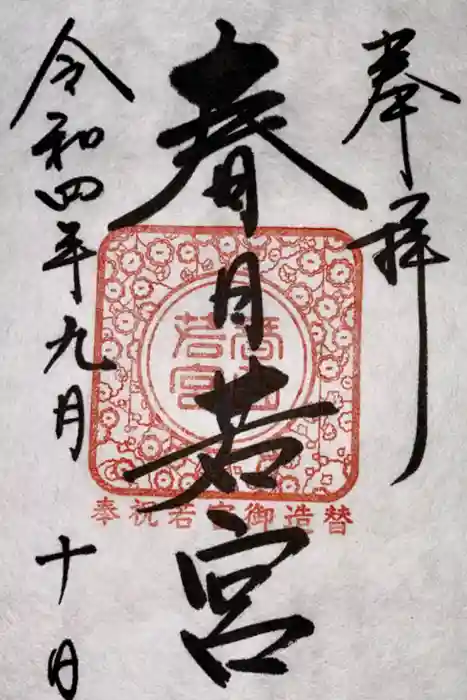 奉拝
春日若宮
令和四年九月十日
奉祝若宮御造替